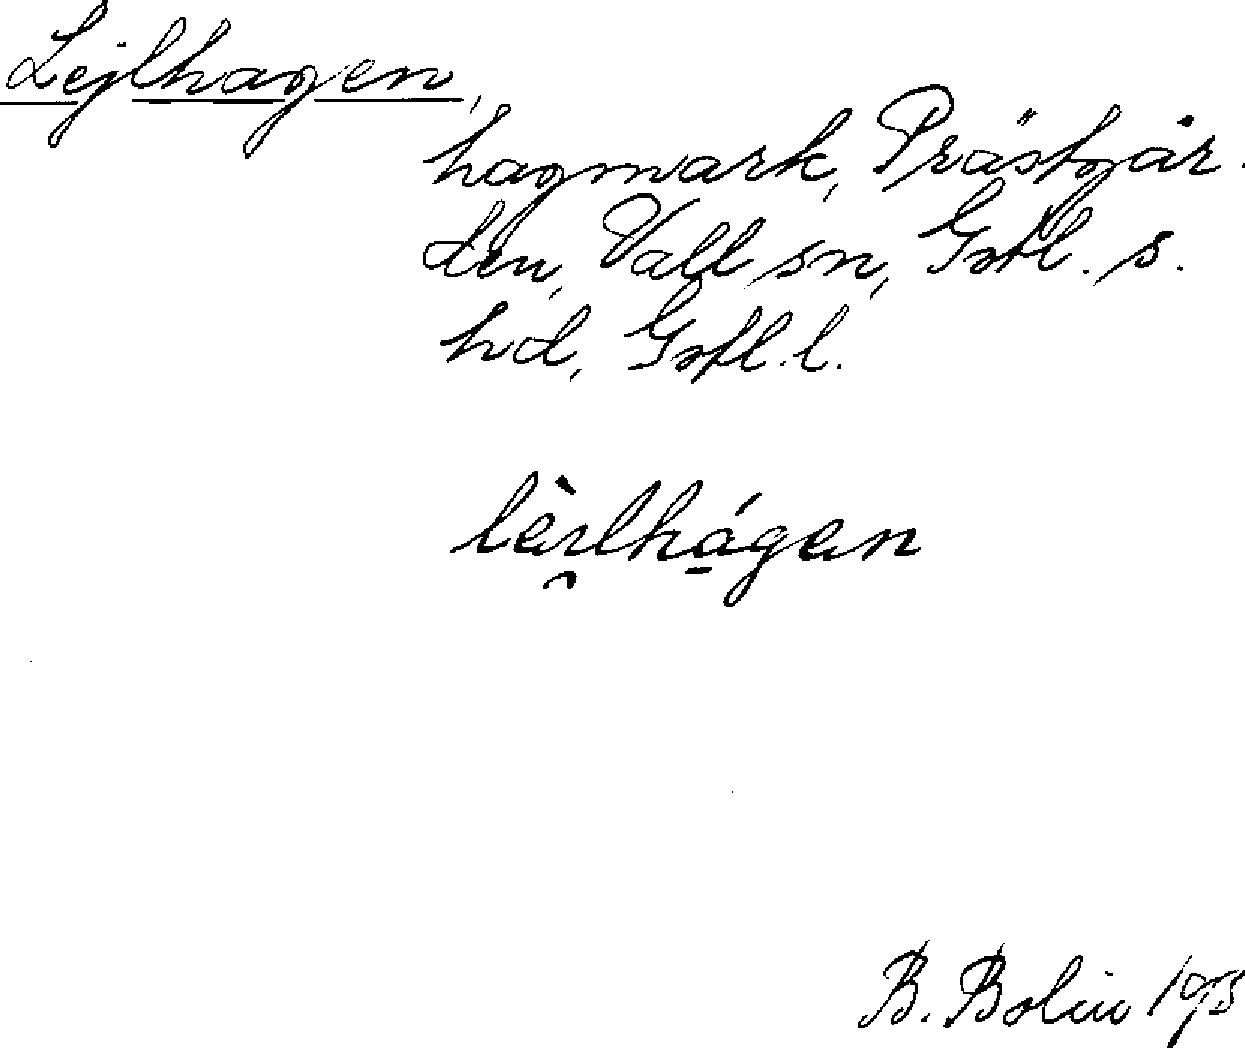 Lejlhagen,
hagmark, Prästgår-
den, Vall sn, Gotl. s.
hd, Gotl. l.
lèɪlhágan
B. Bolin 193